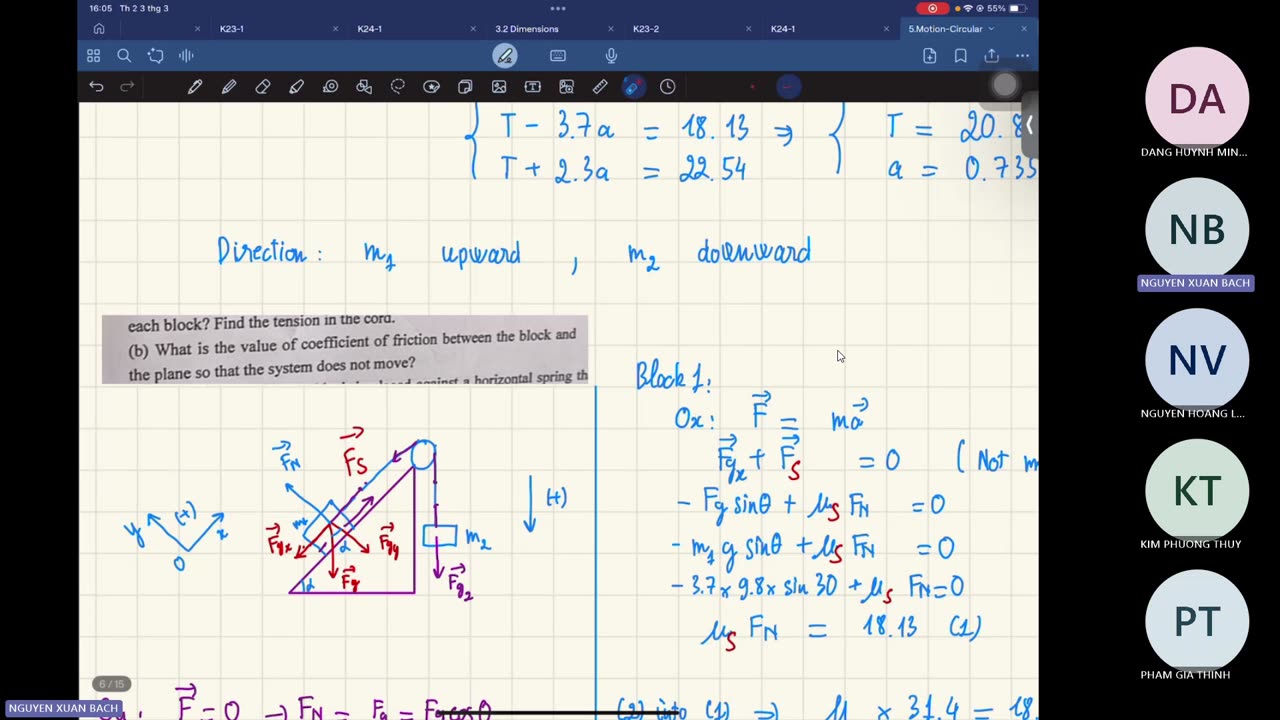 16:05 Th 2 3 thg 3
55%
K23-1
K24-1
3.2 Dimensions
K23-2
K24-1
5.Motion-Circular
T - 3.7a = 18.13 ⇒ T = 20.8
T + 2.3a = 22.54 a = 0.735
Direction: m1 upward, m2 downward
each block? Find the tension in the cord.
(b) What is the value of coefficient of friction between the block and
the plane so that the system does not move?
against a horizontal spring th
Block 1:
Ox: F = ma
Fgx + Fs = 0 (Not m
- Fg sinθ + μs FN = 0
- m1 g sinθ + μs FN = 0
- 3.7 x 9.8 x sin 30 + μs FN = 0
μs FN = 18.13 (1)
FN
Fs
y
(+)
x
O
m1
Fgx
α
Fgy
α
Fg
m2
Fg2
(+)
6 / 15
Oy: F = 0 → FN = Fg = Fg cosθ
(2) into (1) ⇒ μ x 31.4 = 18.
NGUYEN XUAN BACH
DA
DANG HUYNH MIN...
NB
NGUYEN XUAN BACH
NV
NGUYEN HOANG L...
KT
KIM PHUONG THUY
PT
PHAM GIA THINH